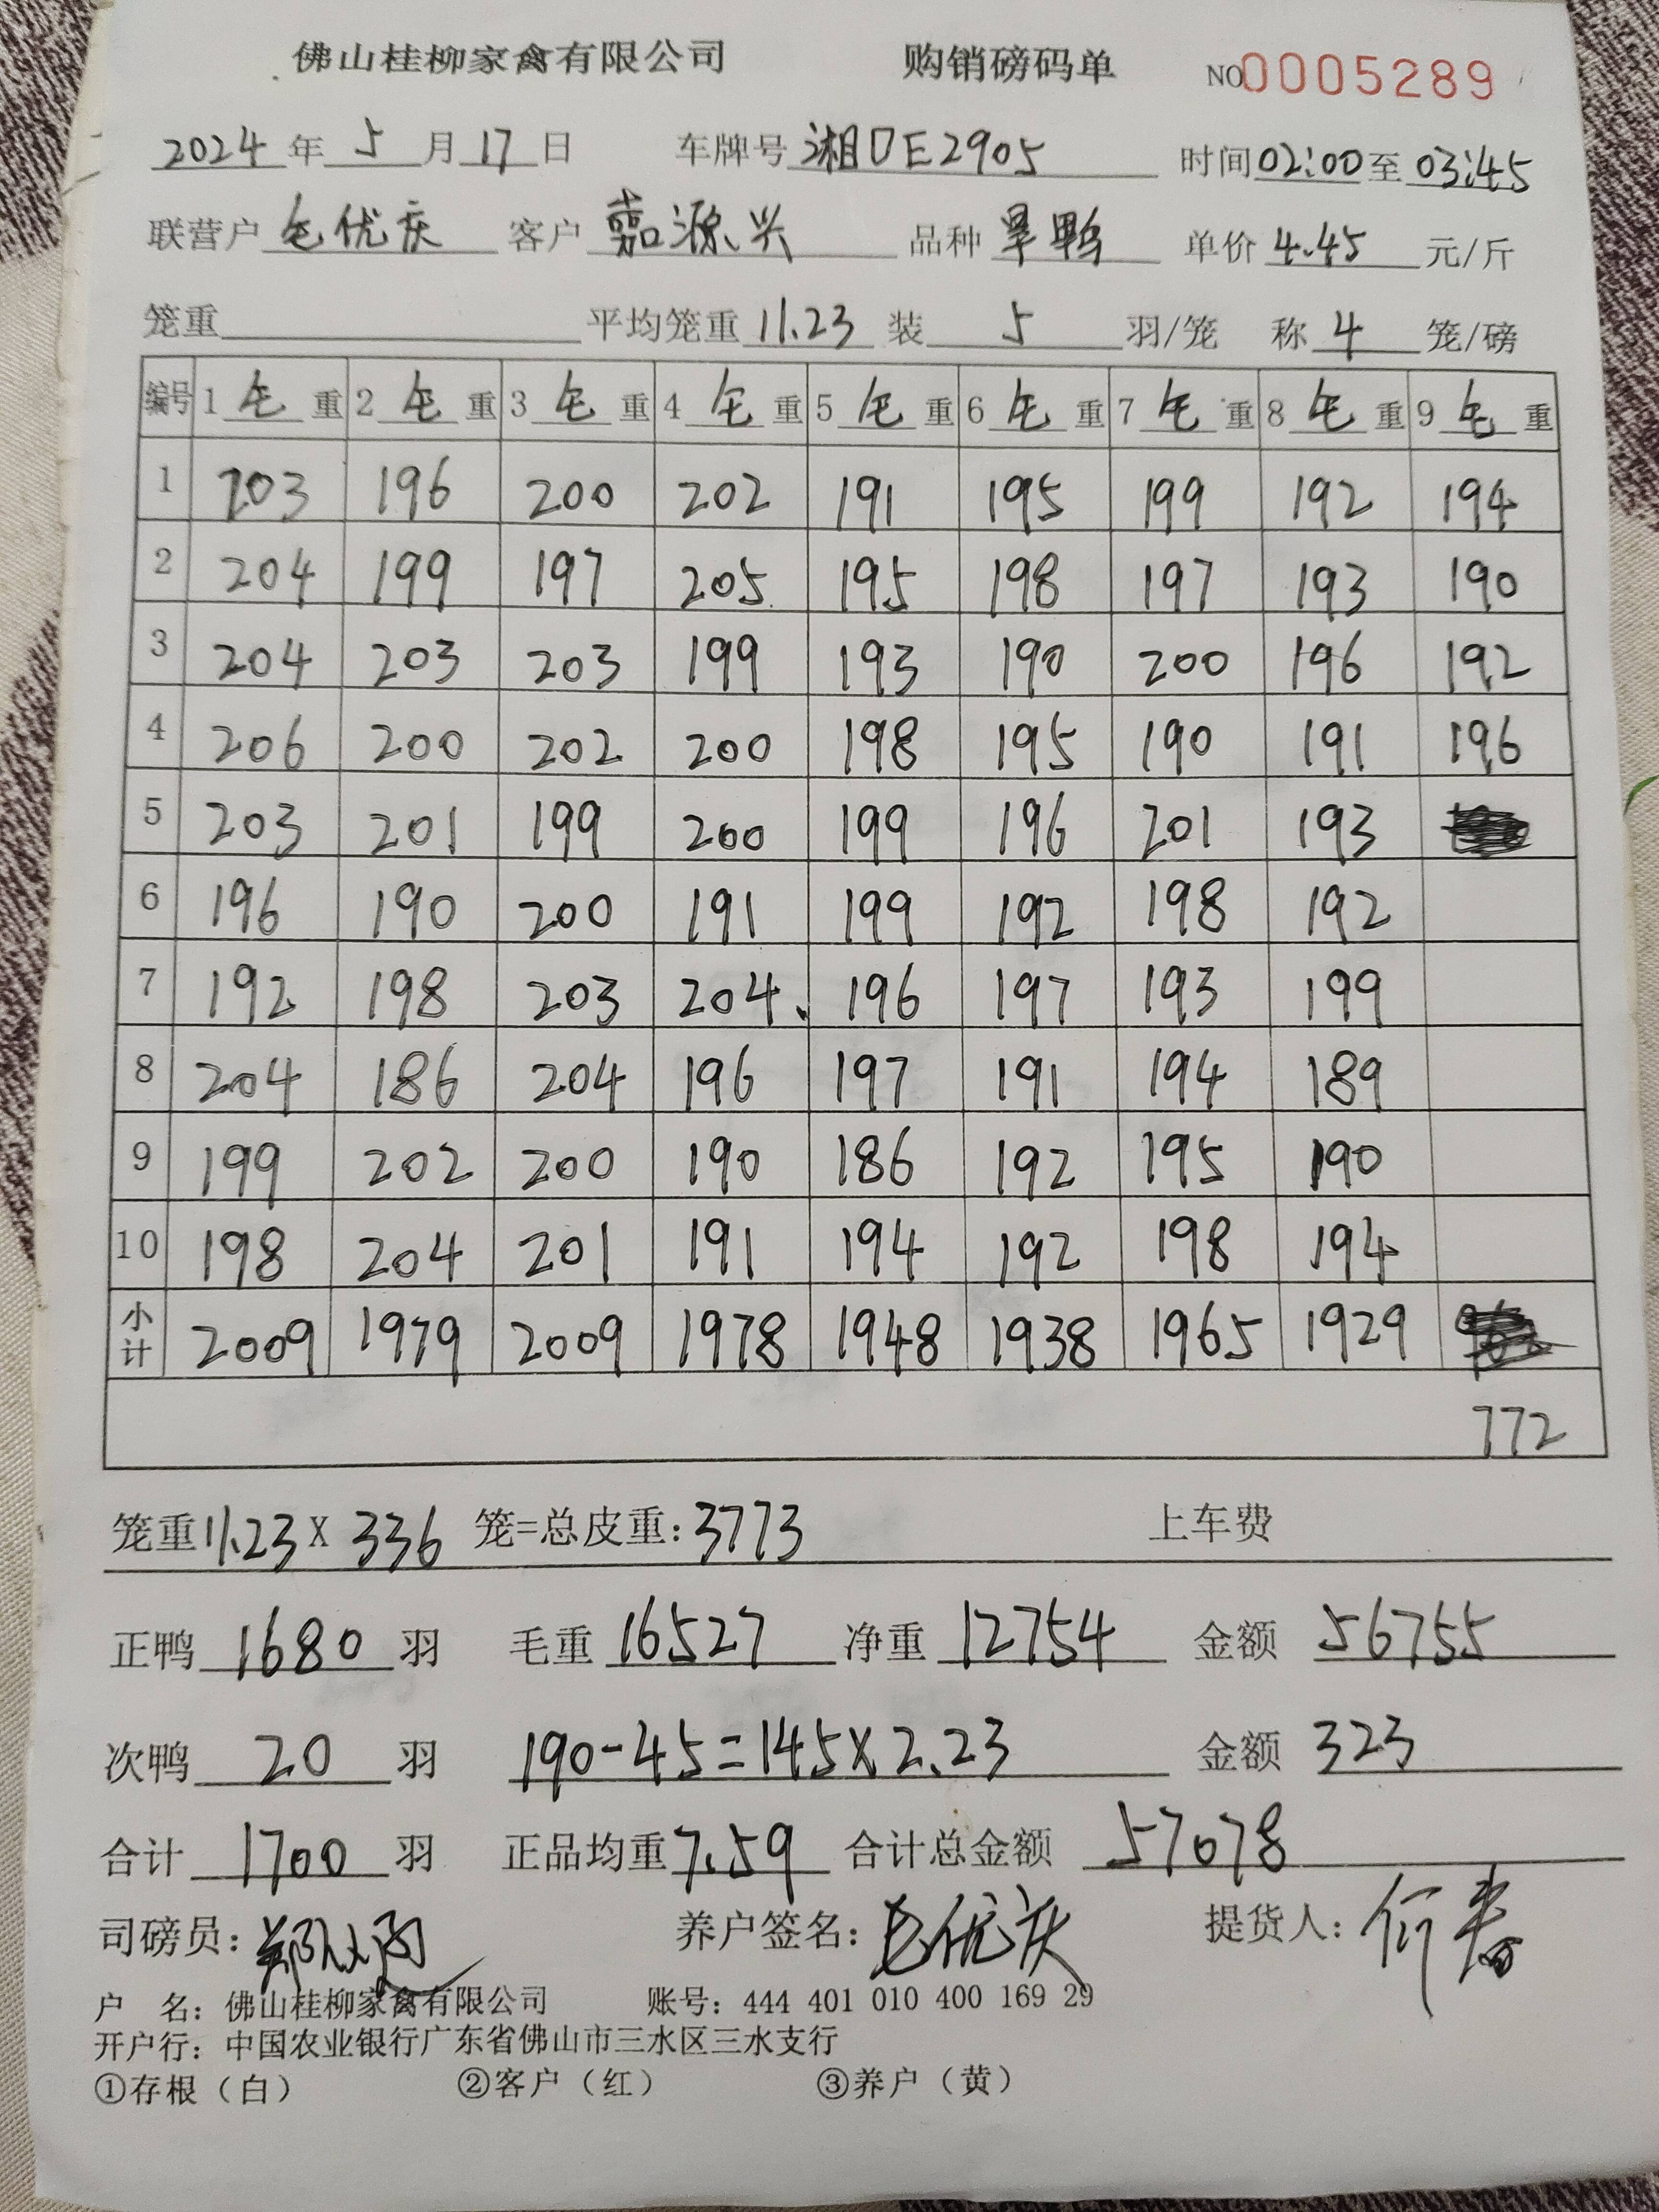 佛山桂柳家禽有限公司 购销磅码单 NO0005289
2024年5月17日 车牌号 湘DE2905 时间02:00至03:45
联营户 毛优庆 客户 嘉源兴 品种 旱鸭 单价 4.45 元/斤
笼重 平均笼重 11.23 装 5 羽/笼 称 4 笼/磅
编号 1毛重 2毛重 3毛重 4毛重 5毛重 6毛重 7毛重 8毛重 9毛重
1 203 196 200 202 191 195 199 192 194
2 204 199 197 205 195 198 197 193 190
3 204 203 203 199 193 190 200 196 192
4 206 200 202 200 198 195 190 191 196
5 203 201 199 200 199 196 201 193
6 196 190 200 191 199 192 198 192
7 192 198 203 204 196 197 193 199
8 204 186 204 196 197 191 194 189
9 199 202 200 190 186 192 195 190
10 198 204 201 191 194 192 198 194
小计 2009 1979 2009 1978 1948 1938 1965 1929
772
笼重11.23X 336 笼=总皮重:3773 上车费
正鸭 1680 羽 毛重 16527 净重 12754 金额 56755
次鸭 20 羽 190-45=145X2.23 金额 323
合计 1700 羽 正品均重7.59 合计总金额 57078
司磅员: 养户签名:毛优庆 提货人:
户 名:佛山桂柳家禽有限公司 账号:444 401 010 400 169 29
开户行:中国农业银行广东省佛山市三水区三水支行
①存根(白) ②客户(红) ③养户(黄)